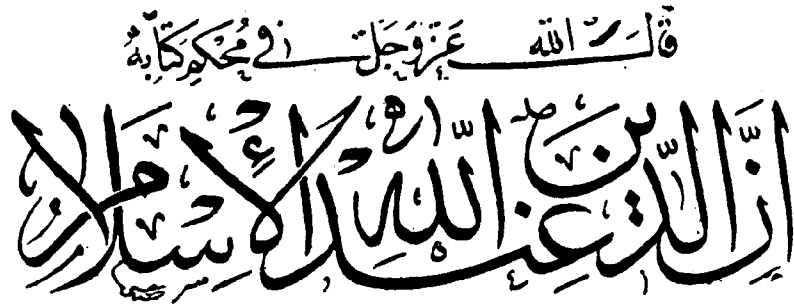 قال الله عز وجل في محكم كتابه
إن الدين عند الله الإسلام